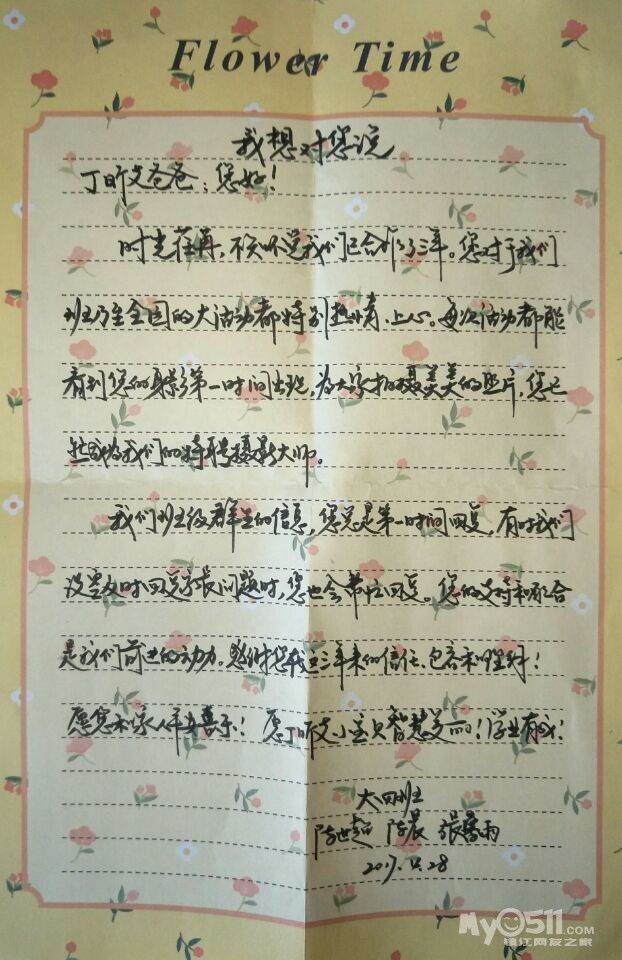 Flower Time
我想对您说
丁昕文爸爸：您好！
时光荏苒，不知不觉我们已合作了三年。您对于我们
班乃至全园的大活动都特别热情、上心。每次活动都能
看到您的身影第一时间出现，为大家拍摄美美的照片，您已
然成为我们的特聘摄影大师。
我们班级群里的信息，您总是第一时间回复，有时我们
没有及时回复家长问题时，您也会帮忙回复。您的支持和配合
是我们前进的动力。感谢您我这三年来的信任、包容和理解！
愿您和家人平安喜乐！愿丁昕文小宝贝智慧美丽！学业有成！
大四班
陈晨 张露雨
2017.12.28
My0511.COM
镇江网友之家